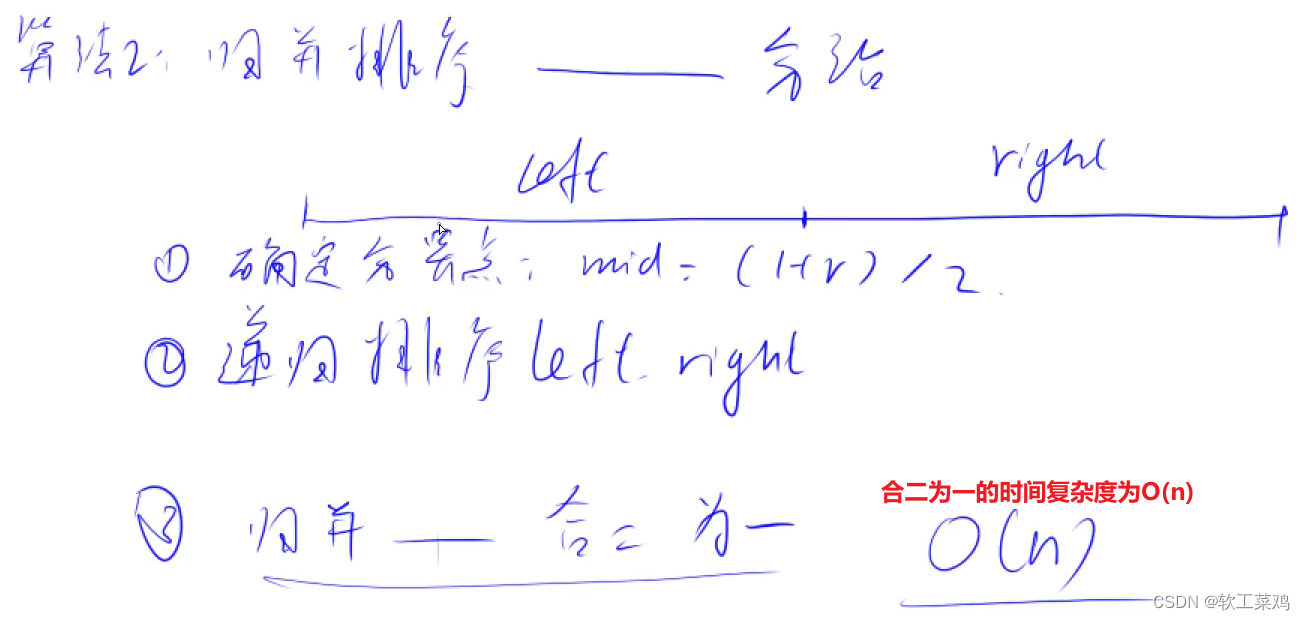 算法2: 归并排序 —— 分治
left right
① 确定分界点: mid = (l+r) / 2
② 递归排序 left. right
合二为一的时间复杂度为O(n)
③ 归并 —— 合二为一 O(n)
CSDN @软工菜鸡